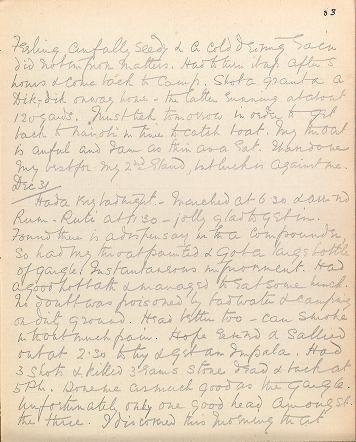 83
Feeling awfully seedy & a cold driving rain
did not improve matters. Had to turn
hours & come back to camp. Shot a grant & a
Dik-dik on way home - the latter running at about
120 yards. Must trek tomorrow in order to get
back to Nairobi in time to catch boat. My throat
is awful and I am as thin as a rat. I have done
my best for my 2nd Eland, but luck is against me.
Dec 31
Had a very bad night - Marched at 6.30 & arrived
Rum-Ruti at 1.30 - jolly glad to get in.
Found there is a dispensary with a compounder
So had my throat painted & got a large bottle
of gargle. Instantaneous improvement. Had
a good hot bath & managed to eat some lunch.
No doubt was poisoned by bad water & camping
on dirty ground. Head better too - can smoke
without much pain. & Sallied
out at 2.30 to try & get an Impala. Had
3 shots & killed 3 rams stone dead & back at
5 P.M. Done me as much good as the gargle.
Unfortunately only one good head amongst
the three. I discovered this morning that